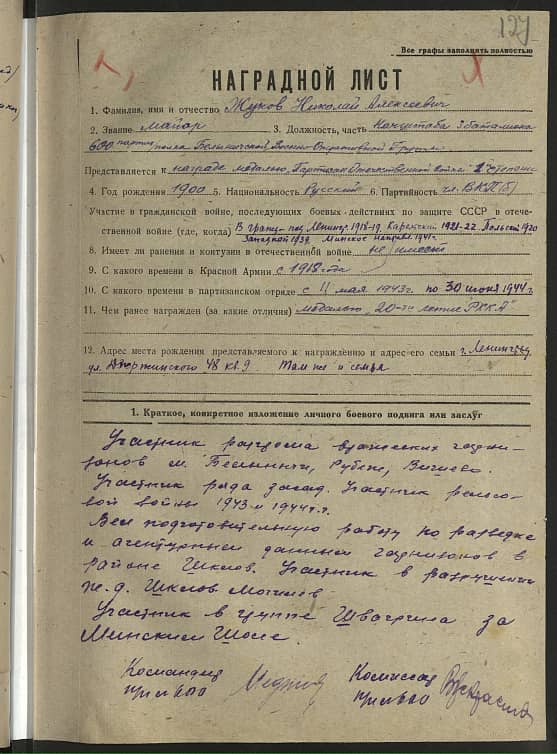 127
Все графы заполнять полностью
НАГРАДНОЙ ЛИСТ
1. Фамилия, имя и отчество Жуков Николай Алексеевич
2. Звание майор 3. Должность, часть Нач.штаба 3 баталиона
600 партиз. полка Белыничской Военно-Оперативной Группы
Представляется к награде медалью "Партизан Отечественной войны" степени
4. Год рождения 1900 5. Национальность Русский 6. Партийность чл. ВКП(б)
Участие в гражданской войне, последующих боевых действиях по защите СССР в отече-
ственной войне (где, когда) В гражд. под Ленингр. 1918-19. Карельский 1921-22 Польский 1920
Западной 1939 Минское направл. 1941
8. Имеет ли ранения и контузии в отечественной войне не имеет
9. С какого времени в Красной Армии с 1918 года
10. С какого времени в партизанском отряде с 11 мая 1943 г. по 30 июня 1944 г.
11. Чем ранее награжден (за какие отличия) медалью "20-ти летие РККА"
12. Адрес места рождения представляемого к награждению и адрес его семьи г. Ленинград
ул. Дзержинского 48 кв 9 Там же и семья
1. Краткое, конкретное изложение личного боевого подвига или заслуг
Участник разгрома вражеских гарни-
зонов м. Белыничи,
Участник ряда засад. Участник рельсо-
вой войны 1943 и 1944 г.г.
Вел подготовительную работу по разведке
и агентурным данным гарнизонов в
районе Шклов. Участник в разрушении
ж.д. Шклов Могилев
Участник в группе за
Минским Шоссе.
Командир Комиссар